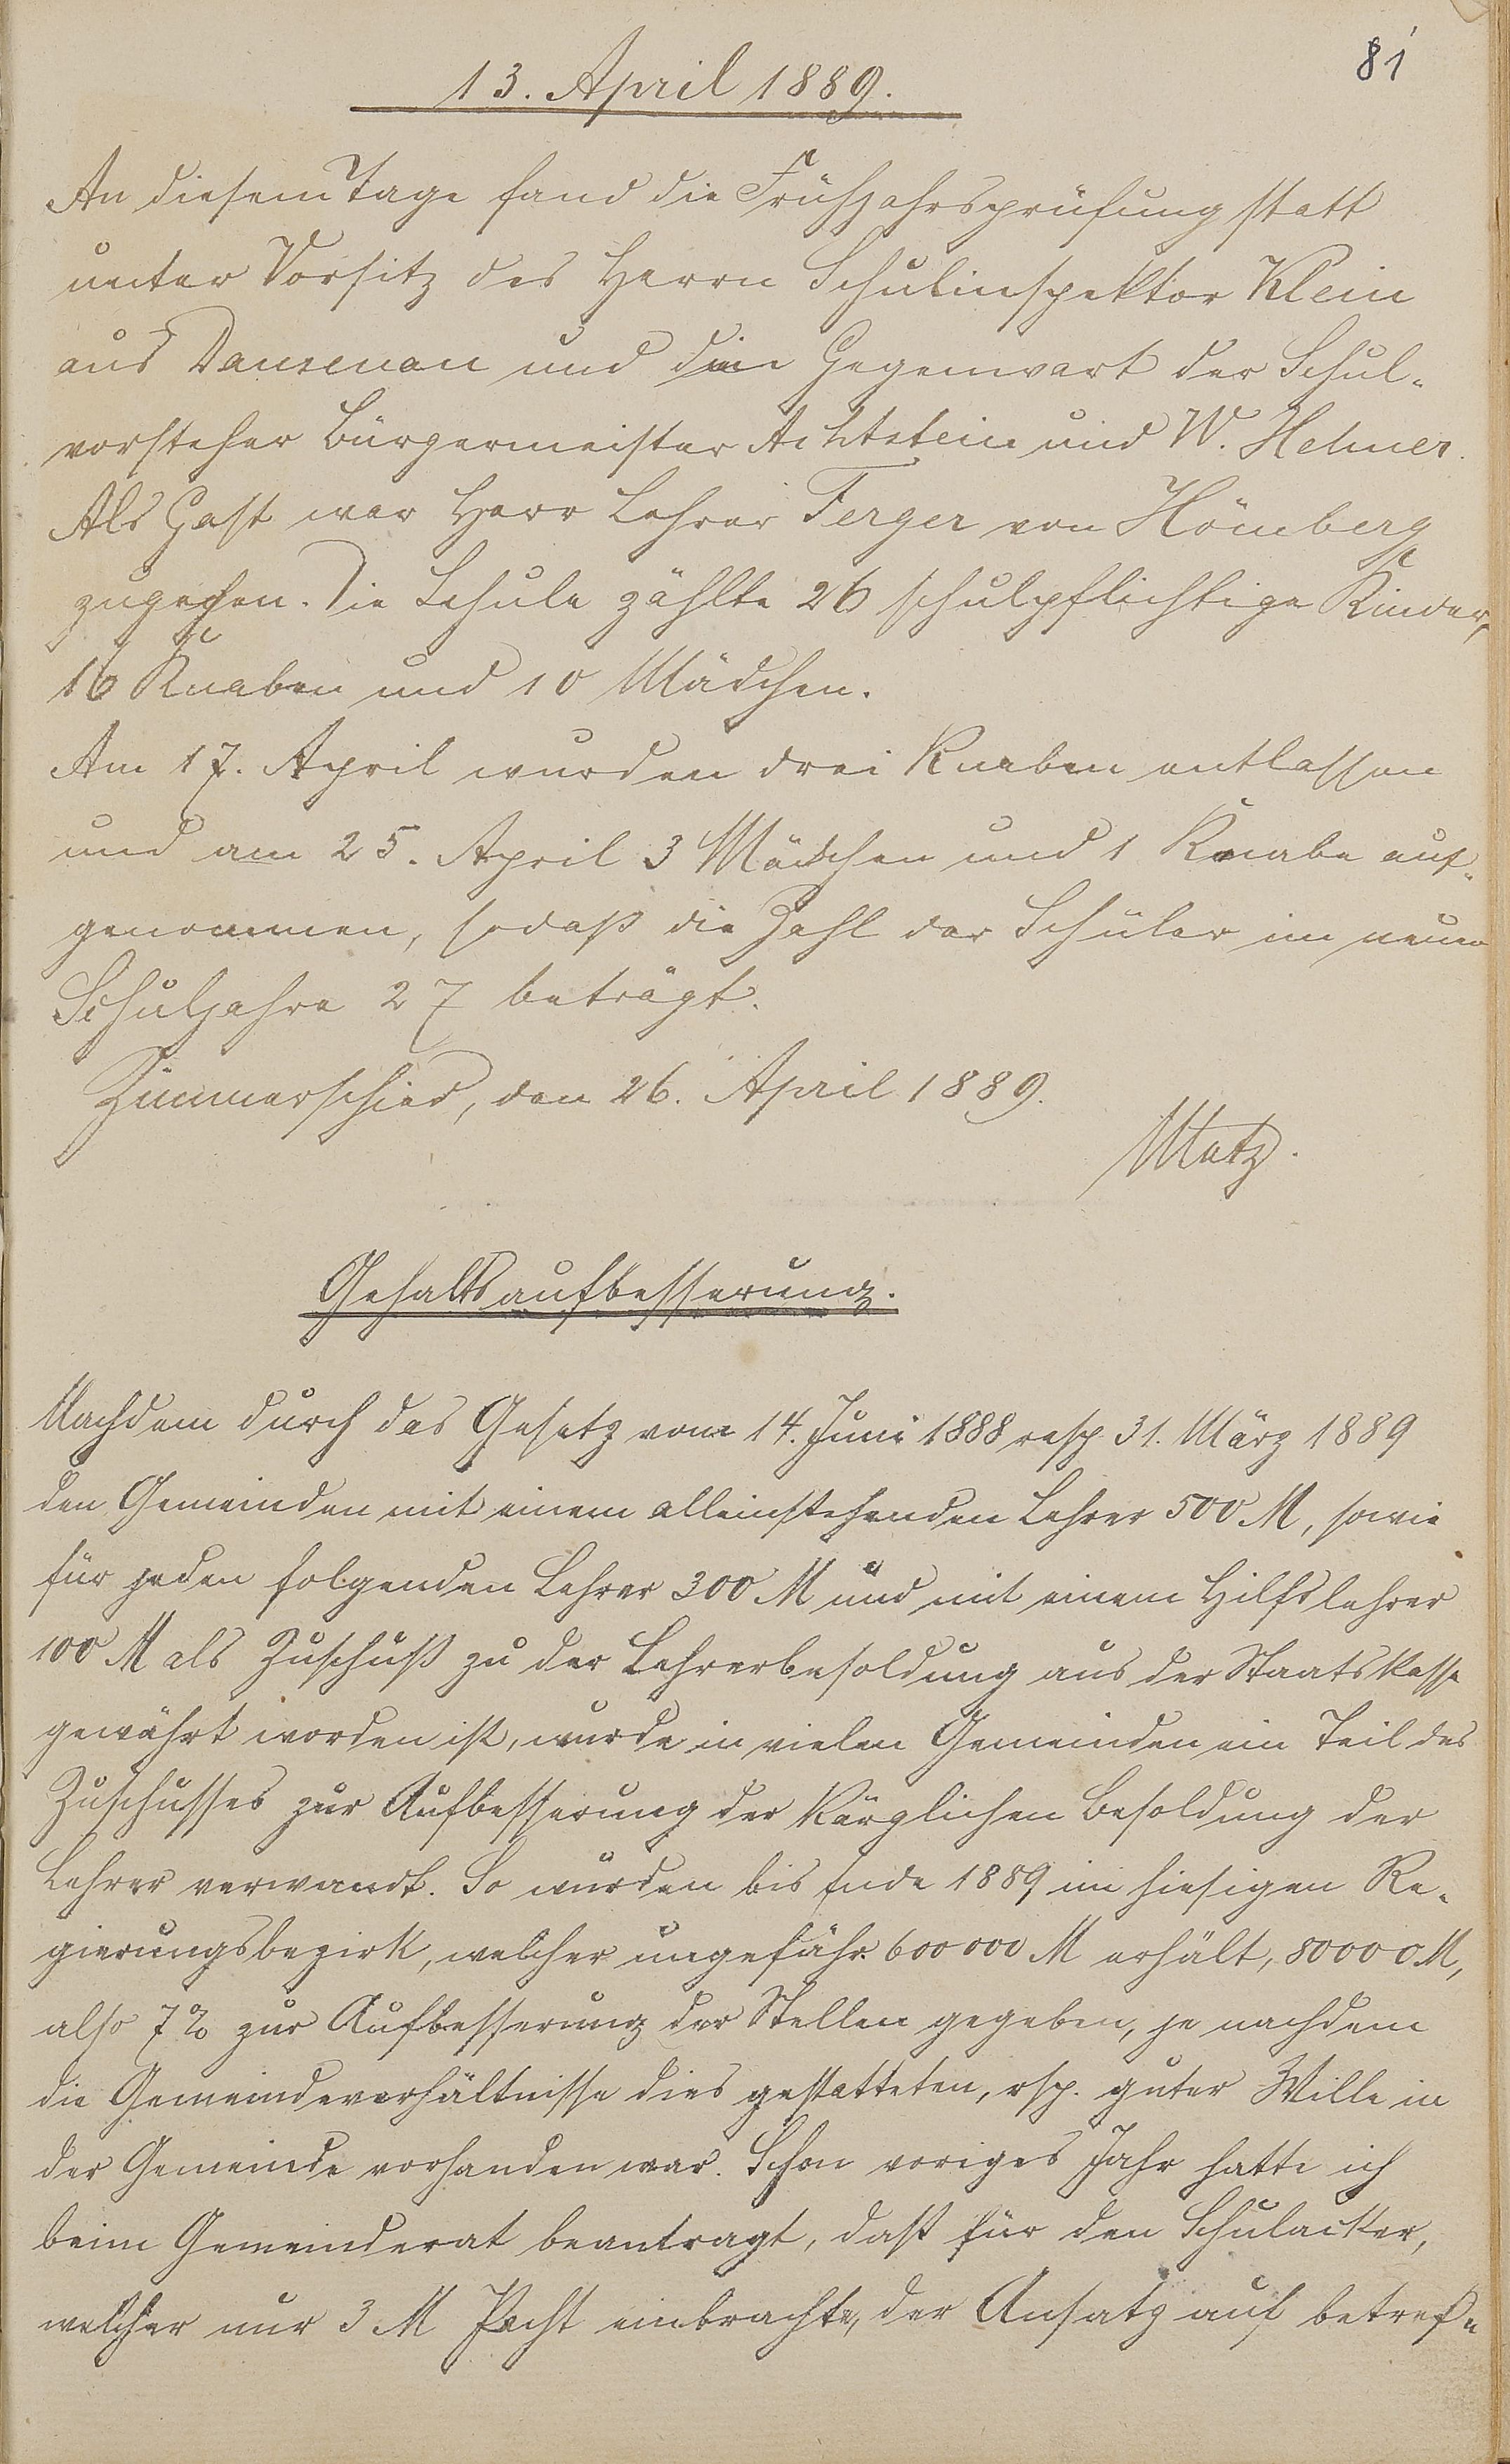 81
13. April 1889.
An diesem Tage fand die Frühjahrsprüfung statt
unter Vorsitz des Herrn Schulinspektor Klein
aus Dausenau und die Gegenwart der Schul-
vorsteher Bürgermeister Achtstein und W. Hehner.
Als Gast war Herr Lehrer Ferger von Hömberg
zugegen. Die Schule zählte 26 schulpflichtige Kinder,
16 Knaben und 10 Mädchen.
Am 17. April wurden drei Knaben entlassen
und am 25. April 3 Mädchen und 1 Knabe auf-
genommen, sodaß die Zahl der Schüler im neuen
Schuljahre 27 beträgt.
Zimmerschied, den 26. April 1889.
Metz.
Gehaltsaufbesserung.
Nachdem durch das Gesetz vom 14. Juni 1888 resp. 31. März 1889
den Gemeinden mit einem alleinstehenden Lehrer 500 M, sowie
für jeden folgenden Lehrer 300 M und mit einem Hilfslehrer
100 M als Zuschuß zu der Lehrerbesoldung aus der Staatskasse
gewährt worden ist, wurde in vielen Gemeinden ein Teil des
Zuschusses zur Aufbesserung der kärglichen Besoldung der
Lehrer verwandt. So wurden bis Ende 1889 im hiesigen Re-
gierungsbezirk, welcher ungefähr 600 000 M erhält, 80000 M,
also 7% zur Aufbesserung der Stellen gegeben, je nachdem
die Gemeindeverhältnisse dies gestatteten, rsp. guter Wille in
der Gemeinde vorhanden war. Schon voriges Jahr hatte ich
beim Gemeinderat beantragt, daß für den Schulacker,
welcher nur 3 M Pacht einbrachte, der Ansatz auf betref-